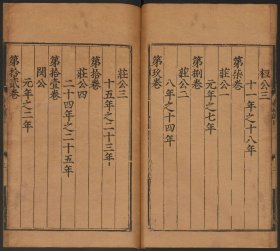 桓公三
十一年之十八年
第柒卷
莊公一
元年之七年
第捌卷
莊公二
八年之十四年
第玖卷
莊公三
十五年之二十三年
第拾卷
莊公四
二十四年之三十二年
第拾壹卷
閔公
元年之二年
第拾貳卷